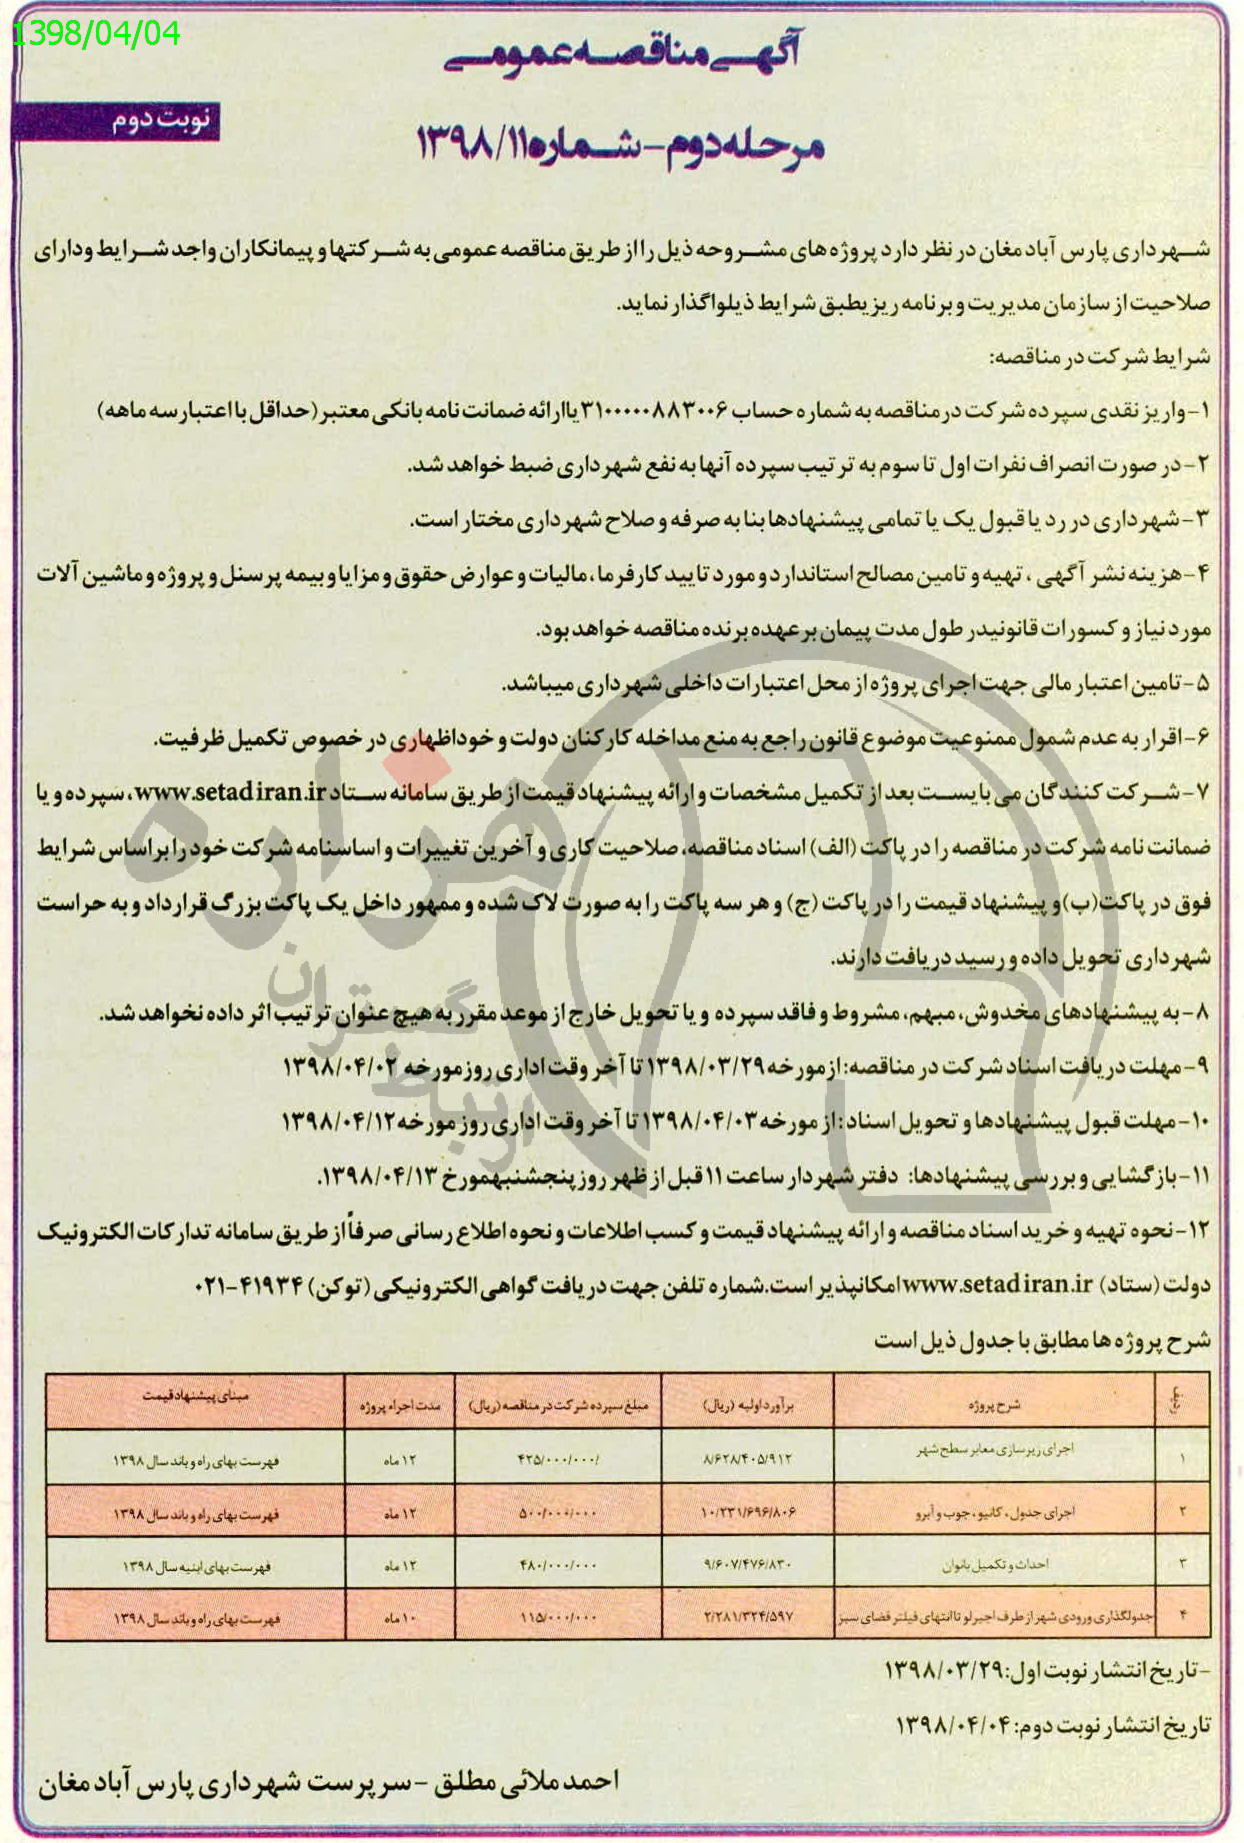 1398/04/04
آگهی مناقصه عمومی
نوبت دوم
مرحله دوم - شماره ۱۳۹۸/۱۱
شهرداری پارس آباد مغان در نظر دارد پروژه های مشروحه ذیل را از طریق مناقصه عمومی به شرکتها و پیمانکاران واجد شرایط ودارای
صلاحیت از سازمان مدیریت و برنامه ریزیطبق شرایط ذیلواگذار نماید.
شرایط شرکت در مناقصه:
۱-واریز نقدی سپرده شرکت در مناقصه به شماره حساب ۳۱۰۰۰۰۰۸۸۳۰۰۶ یاارائه ضمانت نامه بانکی معتبر (حداقل با اعتبار سه ماهه)
۲-در صورت انصراف نفرات اول تا سوم به ترتیب سپرده آنها به نفع شهرداری ضبط خواهد شد.
۳-شهرداری در رد یا قبول یک یا تمامی پیشنهادها بنا به صرفه و صلاح شهرداری مختار است.
۴-هزینه نشر آگهی ، تهیه و تامین مصالح استاندارد و مورد تایید کارفرما، مالیات و عوارض حقوق و مزایا و بیمه پرسنل و پروژه و ماشین آلات
مورد نیاز و کسورات قانونیدر طول مدت پیمان بر عهده برنده مناقصه خواهد بود.
۵-تامین اعتبار مالی جهت اجرای پروژه از محل اعتبارات داخلی شهرداری میباشد.
۶-اقرار به عدم شمول ممنوعیت موضوع قانون راجع به منع مداخله کارکنان دولت و خوداظهاری در خصوص تکمیل ظرفیت.
۷-شرکت کنندگان می بایست بعد از تکمیل مشخصات و ارائه پیشنهاد قیمت از طریق سامانه ستاد www.setadiran.ir، سپرده و یا
ضمانت نامه شرکت در مناقصه را در پاکت (الف) اسناد مناقصه، صلاحیت کاری و آخرین تغییرات و اساسنامه شرکت خود را براساس شرایط
فوق در پاکت(ب)و پیشنهاد قیمت را در پاکت (ج) و هر سه پاکت را به صورت لاک شده و ممهور داخل یک پاکت بزرگ قرارداد و به حراست
شهرداری تحویل داده و رسید دریافت دارند.
۸-به پیشنهادهای مخدوش، مبهم، مشروط و فاقد سپرده و یا تحویل خارج از موعد مقرر به هیچ عنوان ترتیب اثر داده نخواهد شد.
۹-مهلت دریافت اسناد شرکت در مناقصه: ازمورخه ۱۳۹۸/۰۳/۲۹ تا آخر وقت اداری روزمورخه ۱۳۹۸/۰۴/۰۲
۱۰-مهلت قبول پیشنهادها و تحویل اسناد : از مورخه ۱۳۹۸/۰۴/۰۳ تا آخر وقت اداری روز مورخه ۱۳۹۸/۰۴/۱۲
۱۱-بازگشایی و بررسی پیشنهادها: دفتر شهردار ساعت ۱۱ قبل از ظهر روز پنجشنبهمورخ ۱۳۹۸/۰۴/۱۳.
۱۲-نحوه تهیه و خرید اسناد مناقصه و ارائه پیشنهاد قیمت و کسب اطلاعات و نحوه اطلاع رسانی صرفاً از طریق سامانه تدارکات الکترونیک
دولت (ستاد) www.setadiran.ir امکانپذیر است.شماره تلفن جهت دریافت گواهی الکترونیکی (توکن) ۴۱۹۳۴-۰۲۱
شرح پروژه ها مطابق با جدول ذیل است
ردیف شرح پروژه برآورد اولیه (ریال) مبلغ سپرده شرکت در مناقصه (ریال) مدت اجراء پروژه مبنای پیشنهاد قیمت
۱ اجرای زیرسازی معابر سطح شهر ۸/۶۲۸/۴۰۵/۹۱۲ ۴۲۵/۰۰۰/۰۰۰/ ۱۲ ماه فهرست بهای راه و باند سال ۱۳۹۸
۲ اجرای جدول، کانیو، جوب و آبرو ۱۰/۲۳۱/۶۹۶/۸۰۶ ۵۰۰/۰۰۰/۰۰۰ ۱۲ ماه فهرست بهای راه و باند سال ۱۳۹۸
۳ احداث و تکمیل بانوان ۹/۶۰۷/۴۷۶/۸۳۰ ۴۸۰/۰۰۰/۰۰۰ ۱۲ ماه فهرست بهای ابنیه سال ۱۳۹۸
۴ جدولگذاری ورودی شهر از طرف اجیرلو تا انتهای فیلتر فضای سبز ۲/۲۸۱/۳۲۴/۵۹۷ ۱۱۵/۰۰۰/۰۰۰ ۱۰ ماه فهرست بهای راه و باند سال ۱۳۹۸
-تاریخ انتشار نوبت اول: ۱۳۹۸/۰۳/۲۹
تاریخ انتشار نوبت دوم: ۱۳۹۸/۰۴/۰۴
احمد ملائی مطلق - سرپرست شهرداری پارس آباد مغان
هزاره
گسترش
ارتباط